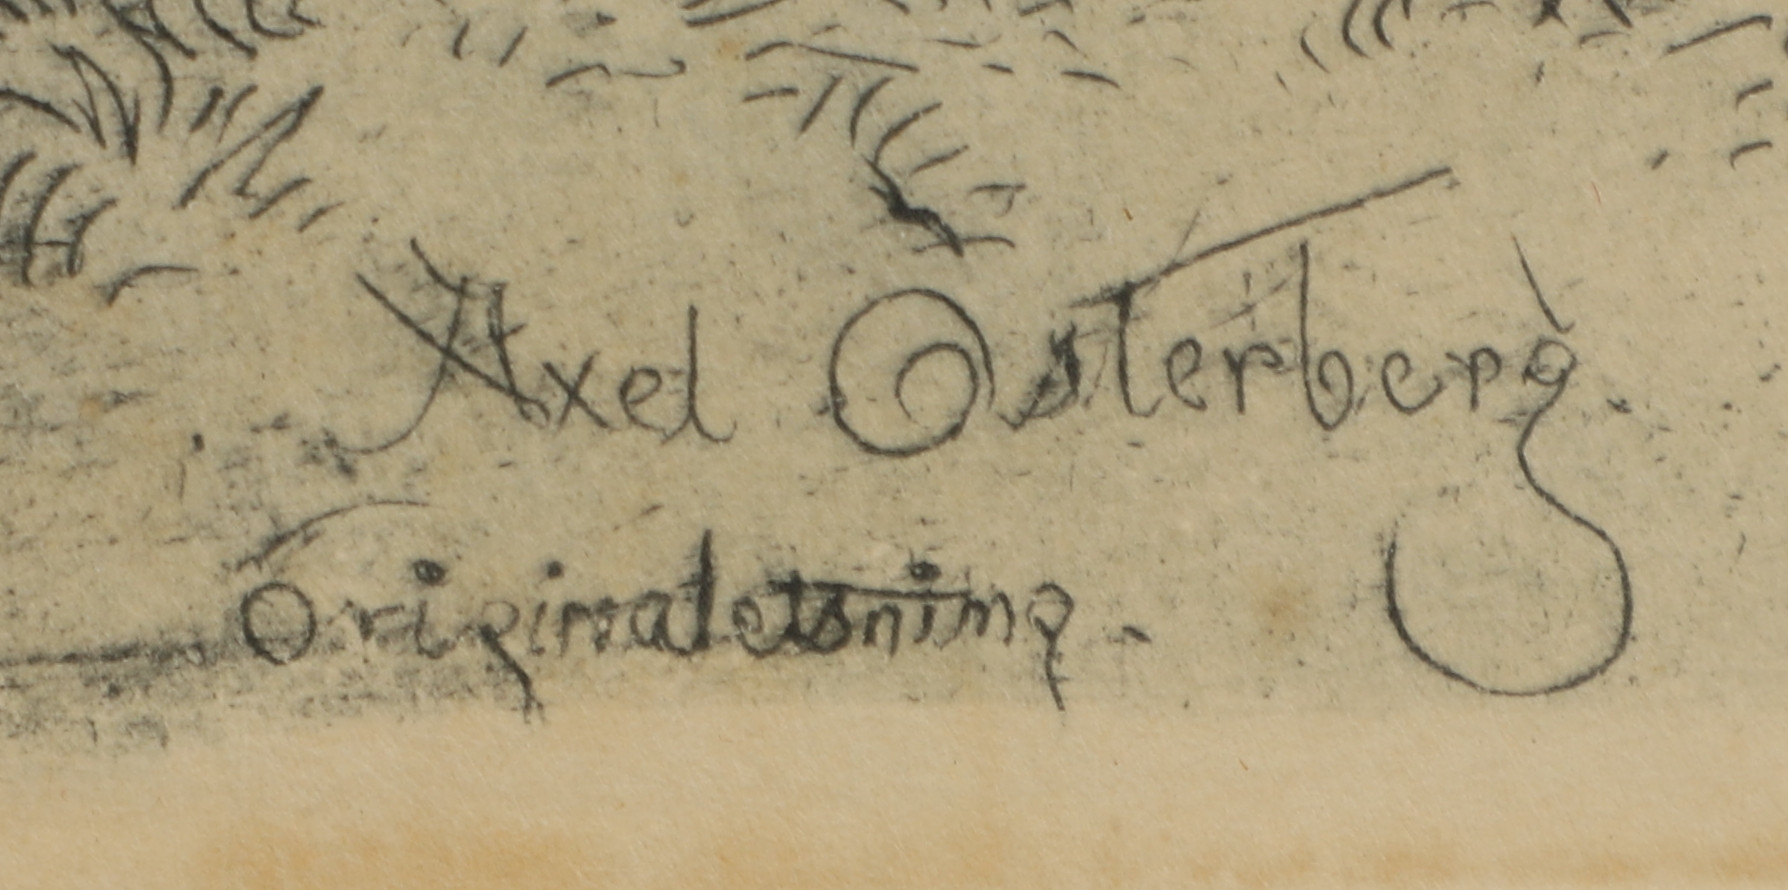 Axel Osterberg.
Originaletsning.